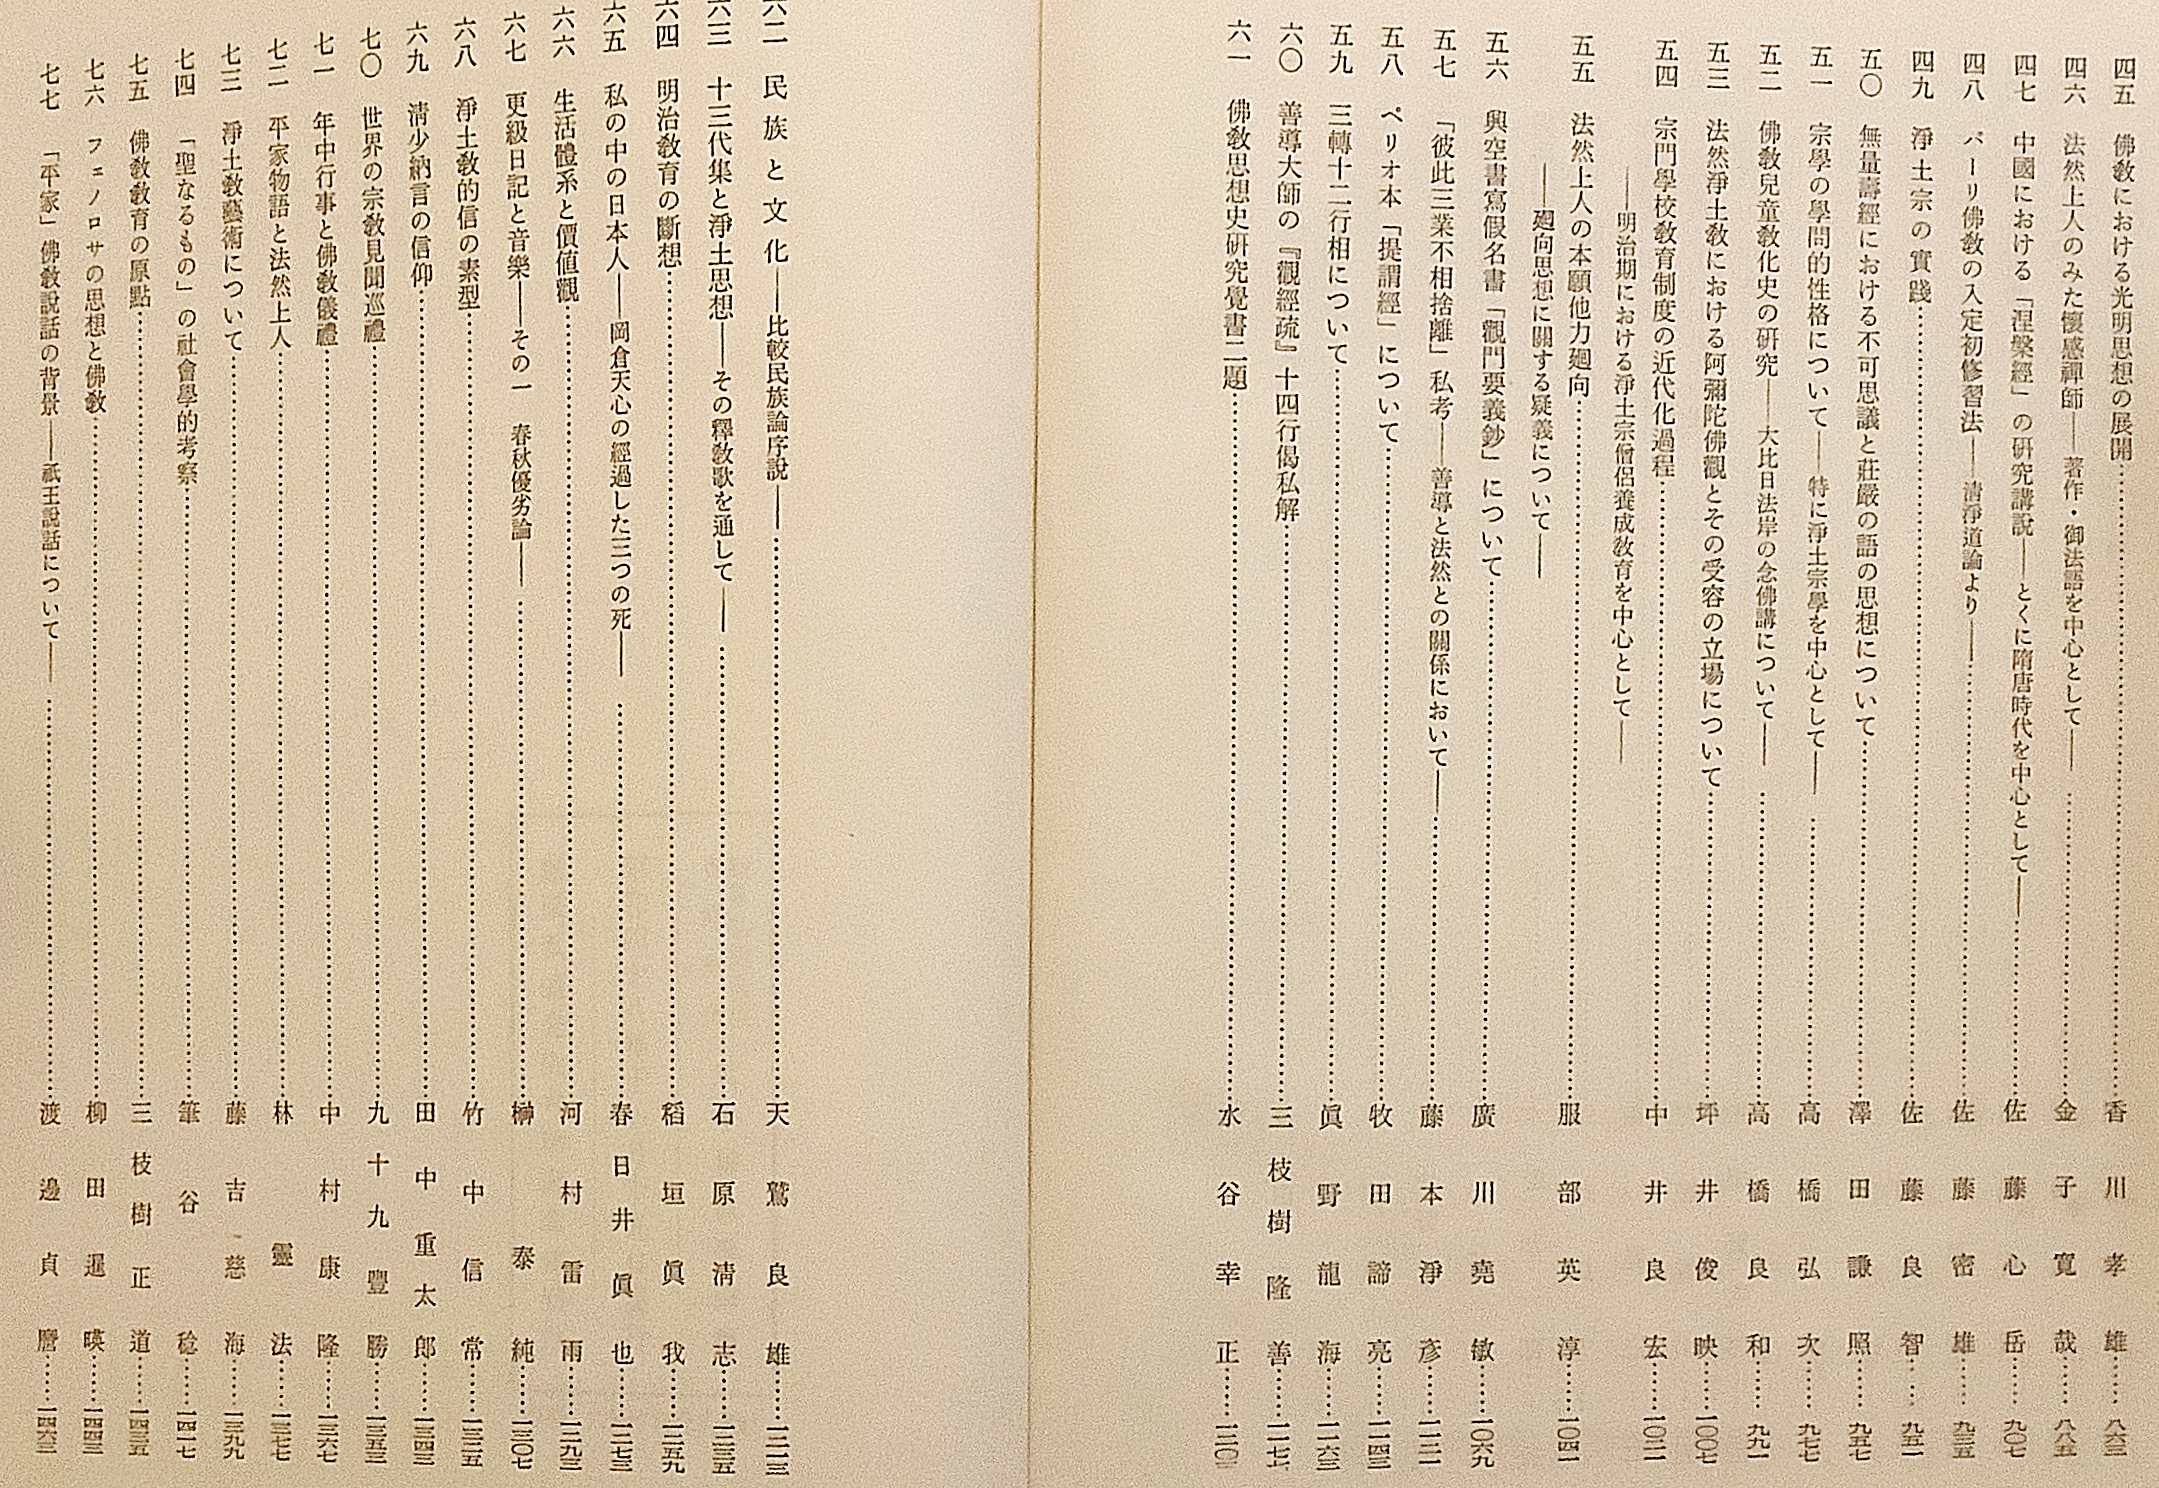 四五 佛教における光明思想の展開……香川孝雄……八六三
四六 法然上人のみた懷感禪師――著作・御法語を中心として――……金子寛哉……八八五
四七 中國における「涅槃經」の研究講説――とくに隋唐時代を中心として――……佐藤心岳……九〇七
四八 パーリ佛教の入定初修習法――清淨道論より――……佐藤密雄……九三五
四九 淨土宗の實踐……佐藤良智……九五一
五〇 無量壽經における不可思議と莊嚴の語の思想について……澤田謙照……九五七
五一 宗學の學問的性格について――特に淨土宗學を中心として――……高橋弘次……九七七
五二 佛教兒童教化史の研究――大比日法岸の念佛講について――……高橋良和……九九一
五三 法然淨土教における阿彌陀佛觀とその受容の立場について……坪井俊映……一〇〇七
五四 宗門學校教育制度の近代化過程……中井良宏……一〇二一
――明治期における淨土宗僧侶養成教育を中心として――
五五 法然上人の本願他力廻向……服部英淳……一〇四一
――廻向思想に關する疑義について――
五六 興空書寫假名書「觀門要義鈔」について……廣川堯敏……一〇六九
五七 「彼此三業不相捨離」私考――善導と法然との關係において――……藤本淨彦……一一二一
五八 ペリオ本「提謂經」について……牧田諦亮……一一四三
五九 三轉十二行相について……眞野龍海……一一六三
六〇 善導大師の『觀經疏』十四行偈私解……三枝樹隆善……一一七七
六一 佛教思想史研究覺書二題……水谷幸正……一二〇一
六二 民族と文化――比較民族論序説――……天鷲良雄……一二一三
六三 十三代集と淨土思想――その釋教歌を通して――……石原清志……一二三五
六四 明治教育の斷想……稻垣眞我……一二五九
六五 私の中の日本人――岡倉天心の經過した三つの死――……春日井眞也……一二七三
六六 生活體系と價値觀……河村雷雨……一二九三
六七 更級日記と音樂――その一 春秋優劣論――……榊泰純……一三〇七
六八 淨土教的信の素型……竹中信常……一三二五
六九 清少納言の信仰……田中重太郎……一三四三
七〇 世界の宗教見聞巡禮……九十九豐勝……一三五三
七一 年中行事と佛教儀禮……中村康隆……一三六七
七二 平家物語と法然上人……林靈法……一三七七
七三 淨土教藝術について……藤吉慈海……一三九九
七四 「聖なるもの」の社會學的考察……筆谷稔……一四一七
七五 佛教教育の原點……三枝樹正道……一四三五
七六 フェノロサの思想と佛教……柳田暹暎……一四四三
七七 「平家」佛教説話の背景――祇王説話について――……渡邊貞麿……一四六三